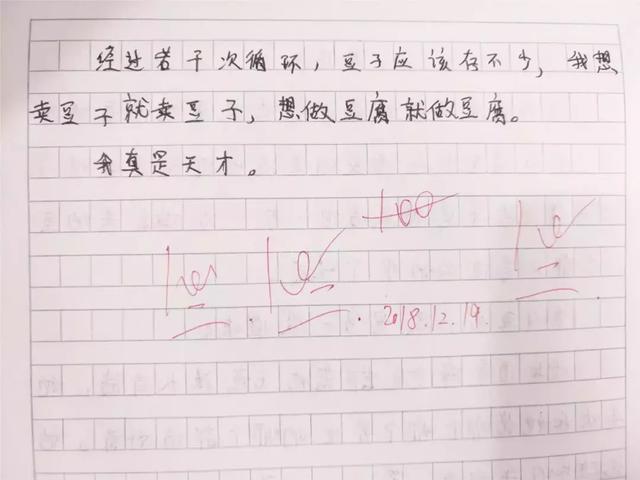 经过若干次循环，豆子应该存不少，我想
卖豆子就卖豆子，想做豆腐就做豆腐。
我真是天才。
100
2018.12.19.